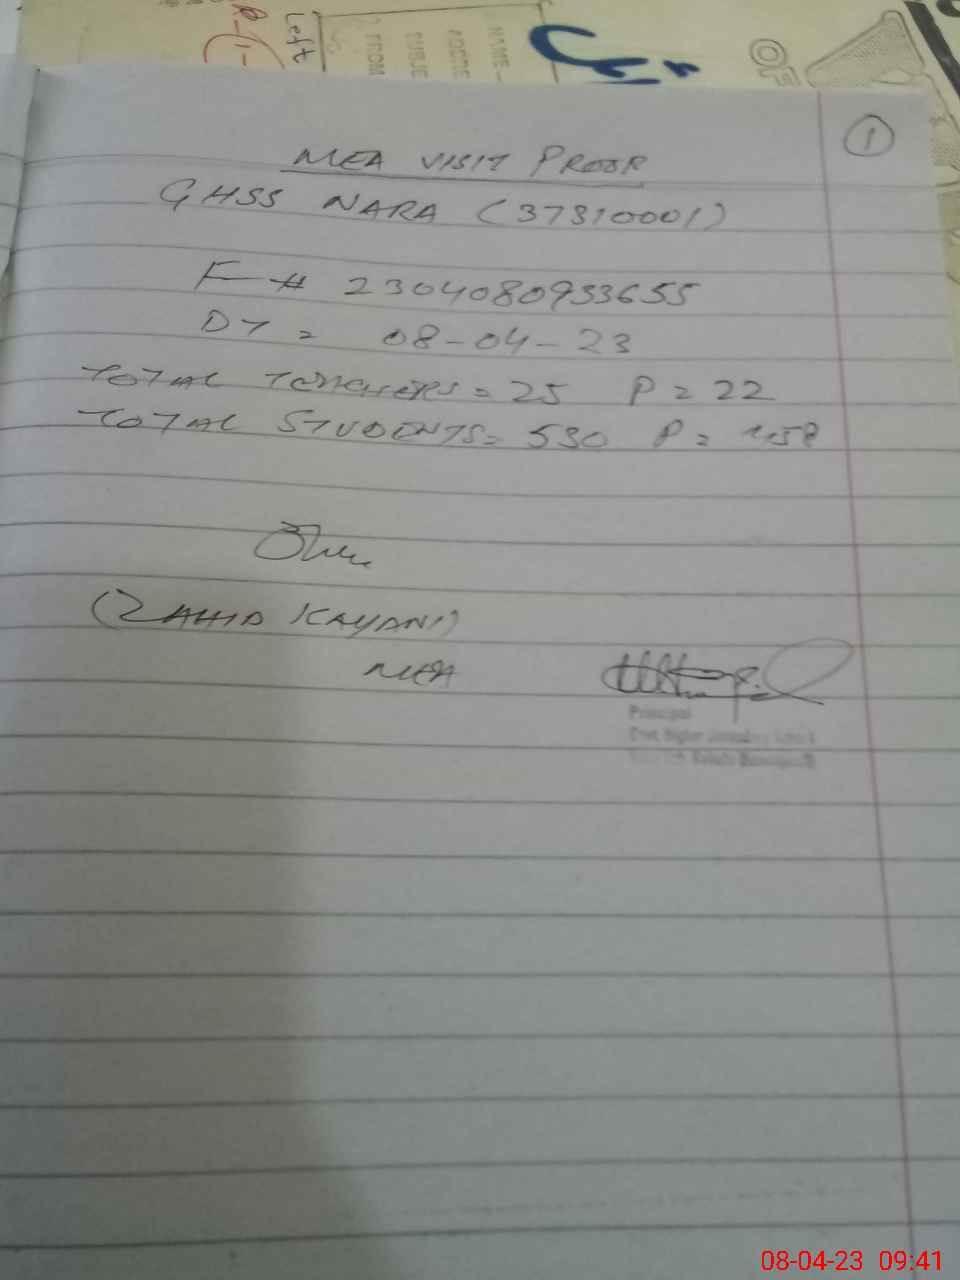 Left
NAME
SUBJE
FROM
OF
1
MEA VISIT PROOF
GHSS NARA (37310001)
F # 2304080953655
DT = 08-04-23
TOTAL TEACHERS = 25 P = 22
TOTAL STUDENTS = 530 P = 458
(ZAHID KAYANI)
MEA
Principal
08-04-23 09:41